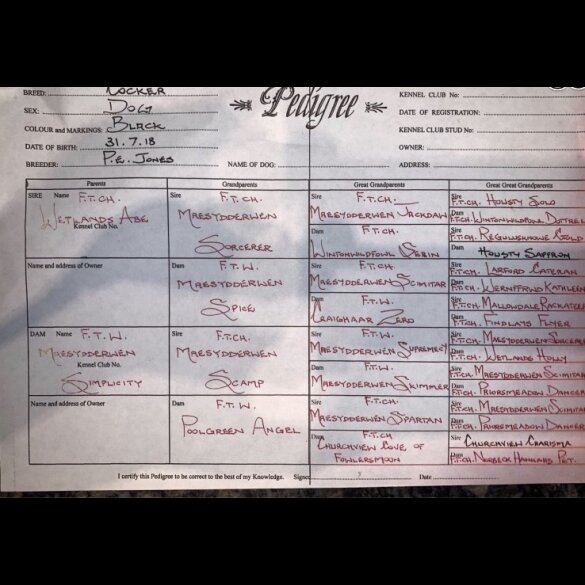 BREED: COCKER
SEX: DOG
COLOUR and MARKINGS: BLACK
DATE OF BIRTH: 31.7.18
BREEDER: P.E. JONES
Pedigree
NAME OF DOG:
KENNEL CLUB No:
DATE OF REGISTRATION:
KENNEL CLUB STUD No:
OWNER:
ADDRESS:
Parents
Grandparents
Great Grandparents
Great Great Grandparents
SIRE Name F.T.CH.
WETLANDS ABE
Kennel Club No.
Name and address of Owner
DAM Name F.T.W.
MAESYDDERWEN
Kennel Club No.
SIMPLICITY
Name and address of Owner
Sire F.T.CH.
MAESYDDERWEN
SORCERER
Dam F.T.W.
MAESYDDERWEN
SPICE
Sire F.T.CH.
MAESYDDERWEN
SCAMP
Dam F.T.W.
POOLGREEN ANGEL
Sire F.T.CH.
MAESYDDERWEN JACKDAW
Dam F.T.CH.
WINTONWILDFOWL SERIN
Sire F.T.CH.
MAESYDDERWEN SCIMITAR
Dam F.T.W.
CRAIGHAAR ZERO
Sire F.T.W.
MAESYDDERWEN SUPREMCY
Dam F.T.W.
MAESYDDERWEN SKIMMER
Sire F.T.CH.
MAESYDDERWEN SPARTAN
Dam F.T.CH
CHURCHVIEW LOVE OF
FOWLERSMOUN
Sire
F.T.CH. HOUSTY SOLO
Dam
F.T.CH. WINTONWILDFOWL
Sire
F.T.CH.
Dam HOUSTY SAFFRON
Sire
F.T.CH. LARFORD CATERAN
Dam
F.T.CH. WERNFFRWD KATHLEEN
Sire
F.T.CH. MALLOWDALE
Dam
F.T.CH. FINDLAMS FLYER
Sire
F.T.CH. MAESYDDERWEN
Dam
F.T.CH. WETLANDS HOLLY
Sire
F.T.CH. MAESYDDERWEN SCIMITAR
Dam
F.T.CH. PRIORSMEADOW DANCER
Sire
F.T.CH. MAESYDDERWEN SCIMITAR
Dam
F.T.CH. PRIORSMEADOW DANCER
Sire CHURCHVIEW CHARISMA
Dam
F.T.CH. NORBECK HANNAHS PET.
I certify this Pedigree to be correct to the best of my Knowledge. Signed
Date